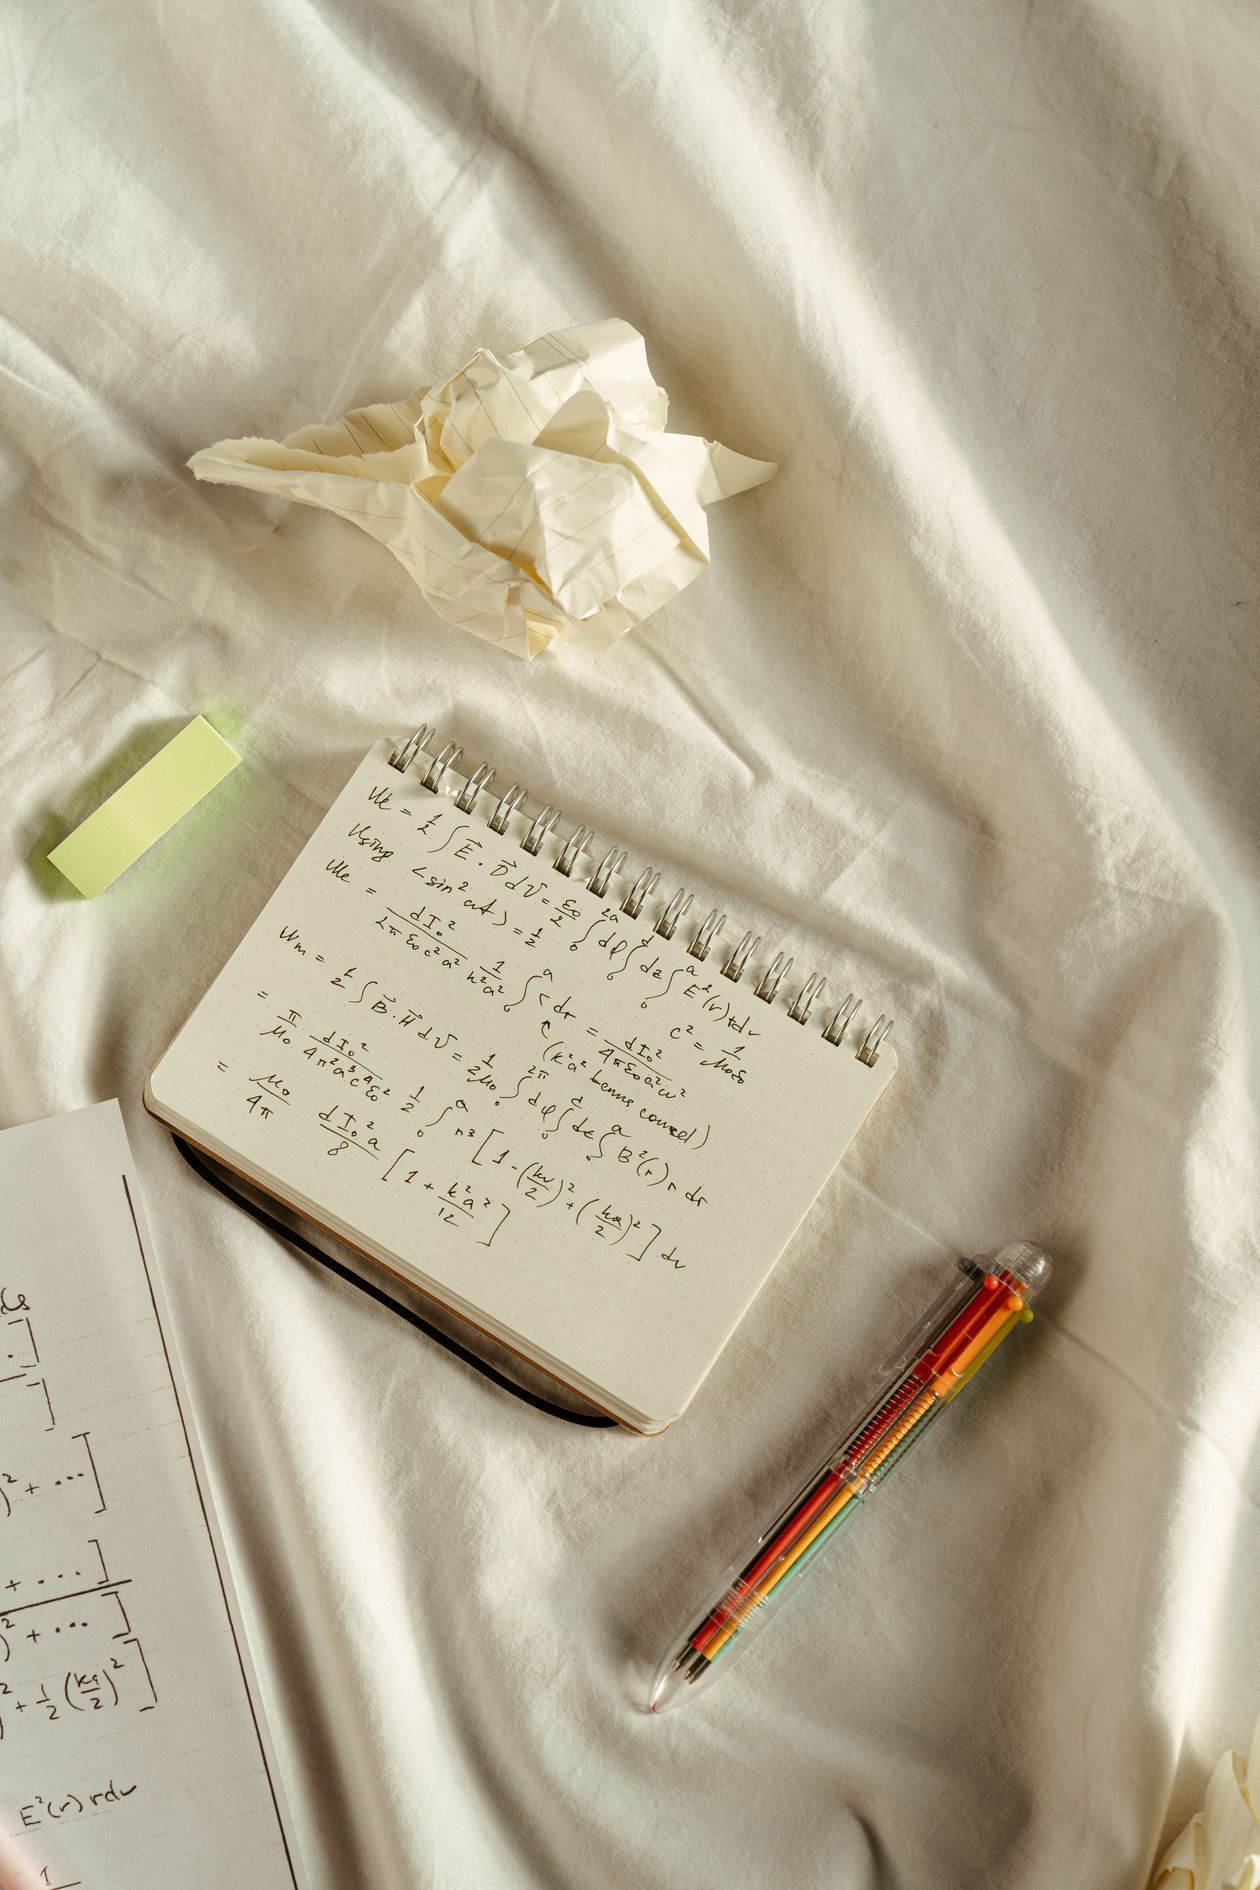 We = 1/2 ∫ E⃗ · D⃗ dV = ε₀/2 ∫₀^2a dφ ∫₀^d dz ∫₀^a E²(r) r dr
Using <sin² ωt> = 1/2 c² = 1/μ₀ε₀
We = dI₀²/2πε₀c²a² 1/k²a² ∫₀^a r dr = dI₀²/4πε₀a²ω²
(k²a² terms cancel)
Wm = 1/2 ∫ B⃗ · H⃗ dV = 1/2μ₀ ∫₀^2π dφ ∫₀^d dz ∫₀^a B²(r) r dr
= π/μ₀ dI₀²/4π²a⁴c⁴ε₀² 1/2 ∫₀^a r³ [1 - (kr/2)² + (ka/2)²] dr
= μ₀/4π dI₀²a/8 [1 + k²a²/12]
)² + ...]
+ ...]
)² + ...]
² + 1/2 (ka/2)²]
E²(r) r dr
1